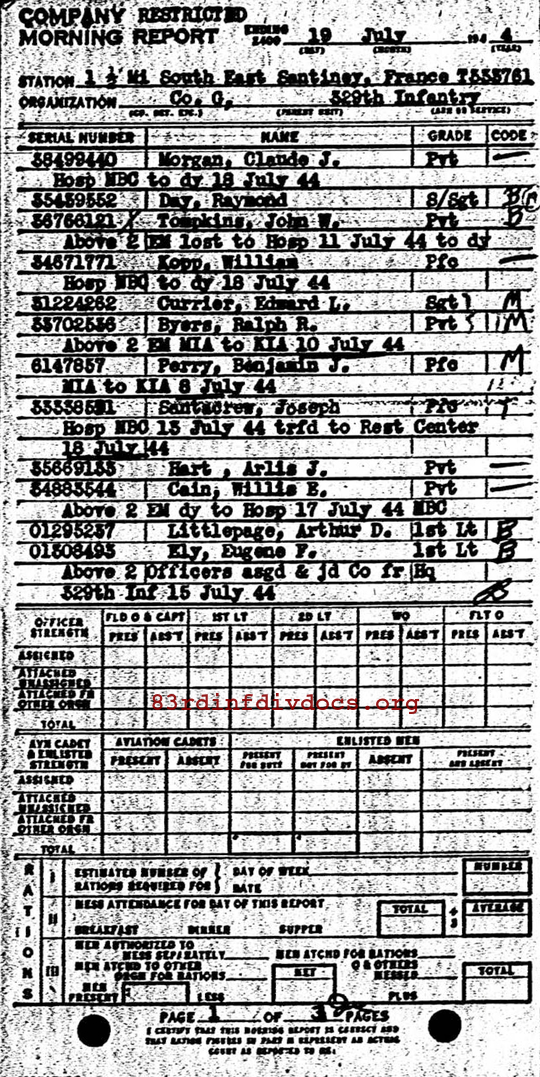 COMPANY RESTRICTED
MORNING REPORT ENDING 2400 19 July 194 4
(DAY) (MONTH) (YEAR)
STATION 1 ½ Mi South East Santiney, France T333761
ORGANIZATION Co. G, 329th Infantry
(CO. DET. ETC.) (PARENT UNIT) (ARM OR SERVICE)
SERIAL NUMBER NAME GRADE CODE
38499440 Morgan, Claude J. Pvt —
Hosp NBC to dy 18 July 44
35439352 Day, Raymond S/Sgt B
36766121 Tompkins, John W. Pvt B
Above 2 EM lost to Hosp 11 July 44 to dy
34671771 Kopp, William Pfc —
Hosp NBC to dy 18 July 44
31224262 Currier, Edward L. Sgt M
33702536 Byers, Ralph R. Pvt M
Above 2 EM MIA to KIA 10 July 44
6147837 Perry, Benjamin J. Pfc M
MIA to KIA 8 July 44
Santacrew, Joseph Pfc
Hosp NBC 13 July 44 trfd to Rest Center
18 July 44
35669133 Hart , Arlis J. Pvt —
34883544 Cain, Willis E. Pvt —
Above 2 EM dy to Hosp 17 July 44 NBC
01295237 Littlepage, Arthur D. 1st Lt B
01308493 Ely, Eugene F. 1st Lt B
Above 2 Officers asgd & jd Co fr Hq
329th Inf 15 July 44
OFFICER STRENGTH FLD O & CAPT 1ST LT 2D LT WO FLT O
PRES ABS'T PRES ABS'T PRES ABS'T PRES ABS'T PRES ABS'T
ASSIGNED
ATTACHED UNASSIGNED
ATTACHED FR OTHER ORGN
83rdinfdivdocs.org
TOTAL
AVN CADET & ENLISTED STRENGTH AVIATION CADETS ENLISTED MEN
PRESENT ABSENT PRESENT FOR DUTY PRESENT NOT FOR DY ABSENT PRESENT AND ABSENT
ASSIGNED
ATTACHED UNASSIGNED
ATTACHED FR OTHER ORGN
TOTAL
RATIONS
I ESTIMATED NUMBER OF RATIONS REQUIRED FOR } DAY OF WEEK DATE NUMBER
II MESS ATTENDANCE FOR DAY OF THIS REPORT TOTAL ÷ 3 AVERAGE
BREAKFAST DINNER SUPPER
III MEN AUTHORIZED TO MESS SEPARATELY MEN ATCHD FOR RATIONS
MEN ATCHD TO OTHER ORGN FOR RATIONS NET O & OTHERS MESSED TOTAL
MEN PRESENT LESS PLUS
PAGE 1 OF 3 PAGES
I CERTIFY THAT THIS MORNING REPORT IS CORRECT AND
THAT RATION FIGURES IN PART III REPRESENT AN ACTUAL
COUNT AS REPORTED TO ME.